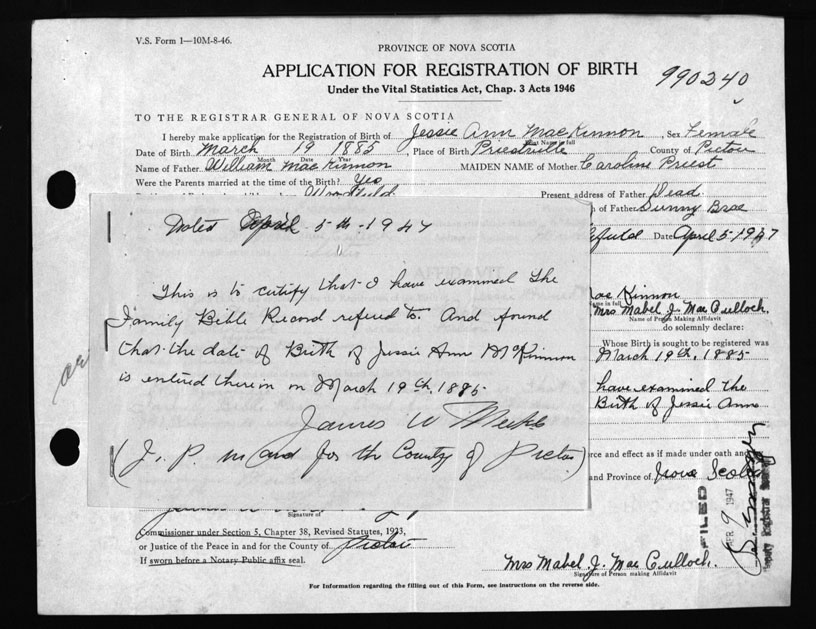 V.S. Form 1—10M-8-46.
PROVINCE OF NOVA SCOTIA
APPLICATION FOR REGISTRATION OF BIRTH
990240
Under the Vital Statistics Act, Chap. 3 Acts 1946
TO THE REGISTRAR GENERAL OF NOVA SCOTIA
I hereby make application for the Registration of Birth of Jessie Ann MacKinnon, Sex Female
Name in full
Date of Birth March 19 1885, Place of Birth Priestville County of Pictou
Month Date Year
Name of Father William MacKinnon MAIDEN NAME of Mother Caroline Priest
Were the Parents married at the time of the Birth? Yes
Present address of Father Dead
of Father Sunny Brae
Date April 5-1947
Dated April 5th-1947
This is to certify that I have examined the
Family Bible Record refered to. And found
that the date of Birth of Jessie Ann McKinnon
is entered therein on March 19th, 1885
James W
(J. P. in and for the County of Pictou)
Mac Kinnon
Name in full
Mrs Mabel J. Mac Culloch.
Name of Person Making Affidavit
do solemnly declare:
Whose Birth is sought to be registered was
March 19th, 1885
have examined the
Birth of Jessie Ann
force and effect as if made under oath and
and Province of Nova Scotia
FILED
APR 9 1947
Deputy Registrar
Signature of
Commissioner under Section 5, Chapter 38, Revised Statutes, 1923,
or Justice of the Peace in and for the County of Pictou
If sworn before a Notary Public affix seal.
Mrs Mabel J. Mac Culloch.
Signature of Person making Affidavit
For Information regarding the filling out of this Form, see instructions on the reverse side.